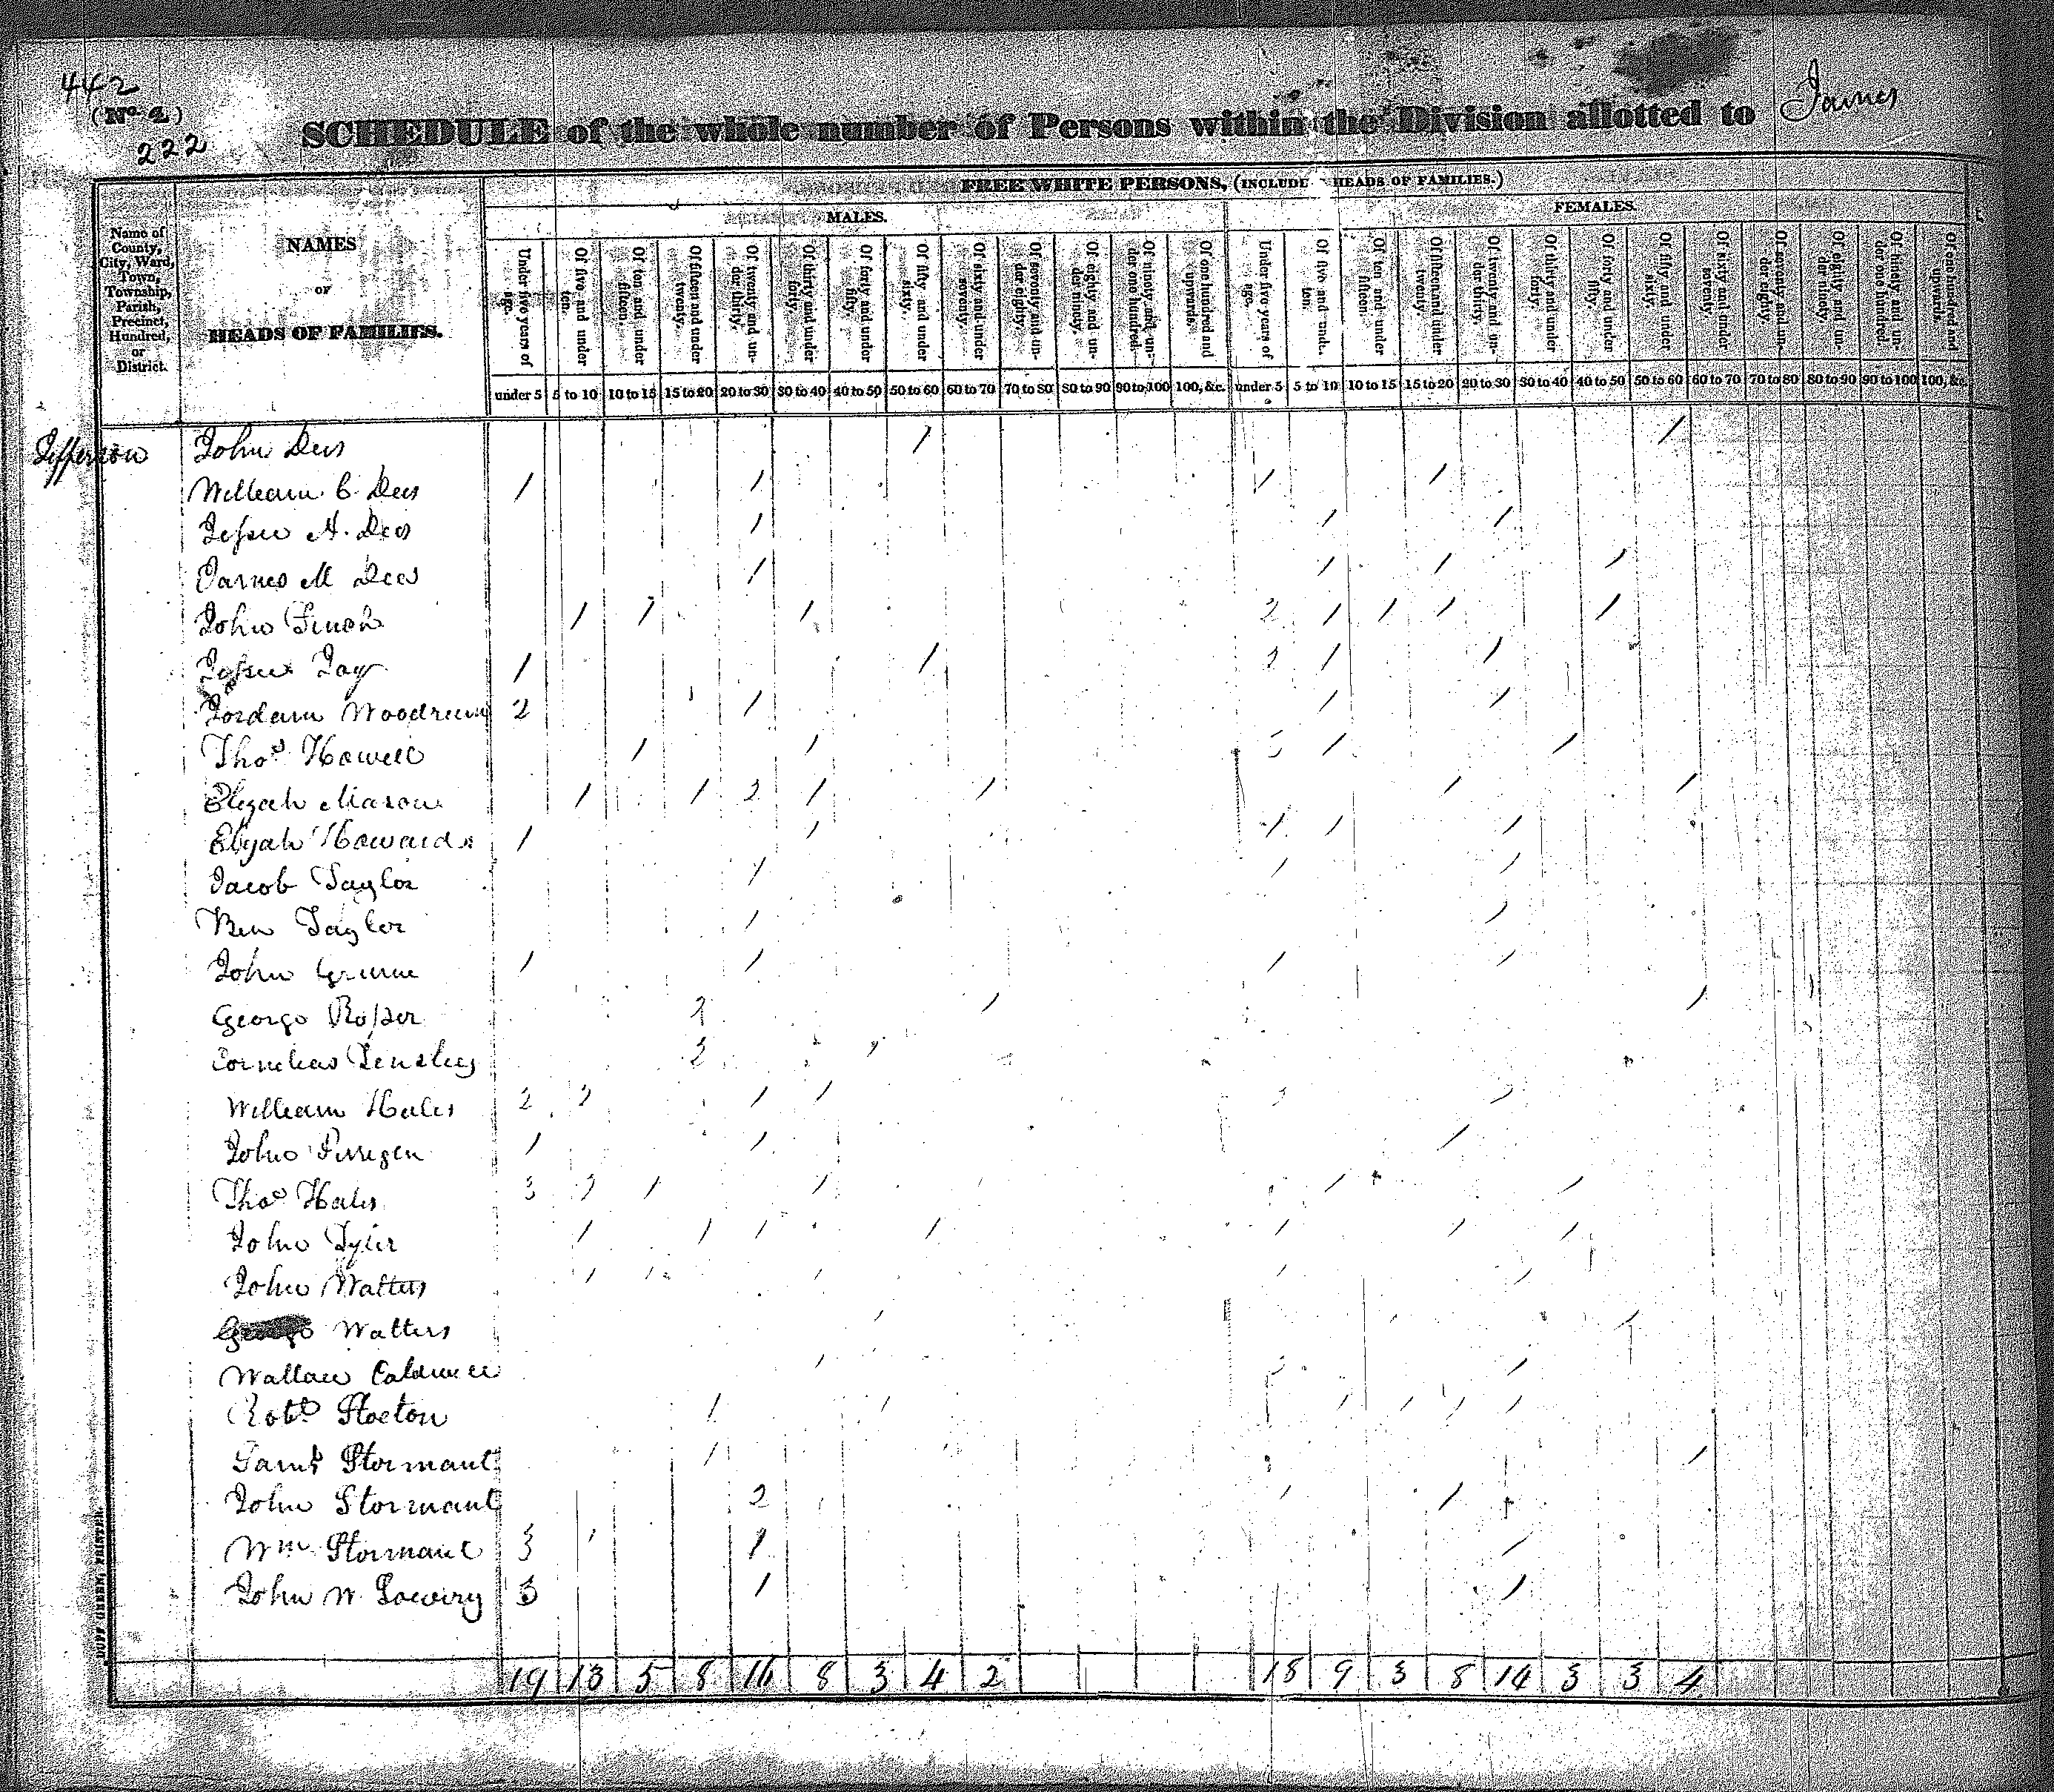 442
(No. 4)
222
SCHEDULE of the whole number of Persons within the Division allotted to James
FREE WHITE PERSONS, (INCLUDE HEADS OF FAMILIES.)
MALES.
FEMALES.
Name of County, City, Ward, Town, Township, Parish, Precinct, Hundred, or District.
NAMES
OF
HEADS OF FAMILIES.
Under five years of age.
Of five and under ten.
Of ten and under fifteen.
Of fifteen and under twenty.
Of twenty and under thirty.
Of thirty and under forty.
Of forty and under fifty.
Of fifty and under sixty.
Of sixty and under seventy.
Of seventy and under eighty.
Of eighty and under ninety.
Of ninety and under one hundred.
Of one hundred and upwards.
Under five years of age.
Of five and under ten.
Of ten and under fifteen.
Of fifteen and under twenty.
Of twenty and under thirty.
Of thirty and under forty.
Of forty and under fifty.
Of fifty and under sixty.
Of sixty and under seventy.
Of seventy and under eighty.
Of eighty and under ninety.
Of ninety and under one hundred.
Of one hundred and upwards.
under 5 5 to 10 10 to 15 15 to 20 20 to 30 30 to 40 40 to 50 50 to 60 60 to 70 70 to 80 80 to 90 90 to 100 100, &c. under 5 5 to 10 10 to 15 15 to 20 20 to 30 30 to 40 40 to 50 50 to 60 60 to 70 70 to 80 80 to 90 90 to 100 100, &c.
Jefferson John Dees 1 1
William C. Dees 1 1 1 1
Jesse A. Dees 1 1 1
James M Dees 1 1 1 1
John 1 1 1 2 1 1 1 1
1 1 1 1
Woodrum 2 1 1 1
Thos Howell 1 1 1 1
Elijah Mason 1 1 2 1 1 1 1
Elijah Howard 1 1 1 1 1
Jacob Taylor 1 1 1
Ben Taylor 1 1
John Greene 1 1 1 1
George 1 1
Cornelius
William Hales 2 2 1 1
John 1 1 1
Thos Hales 3 2 1 1 1 1
John Tyler 1 1 1 1 1 1 1
John Watters 1 1 1 1 1
Watters 1 1
Caldwell 1 1
Robt Stocton 1 1 1 1 1 1
Stormant 1 1 1
John Stormant 2 1 1
Wm Stormant 3 1 1 1
John W. Lowery 3 1 1
19 13 5 8 16 8 3 4 2 18 9 3 8 14 3 3 4
DUFF GREEN, PRINTER.